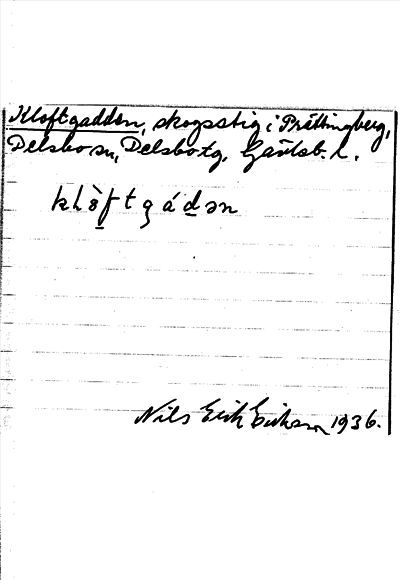 Kloftgaddən, skogsstig i Prästingberg,
Delsbo sn, Delsbo tg, Gävleb. l.
khò̱ftgádən
Nils Erik Eriksson 1936.